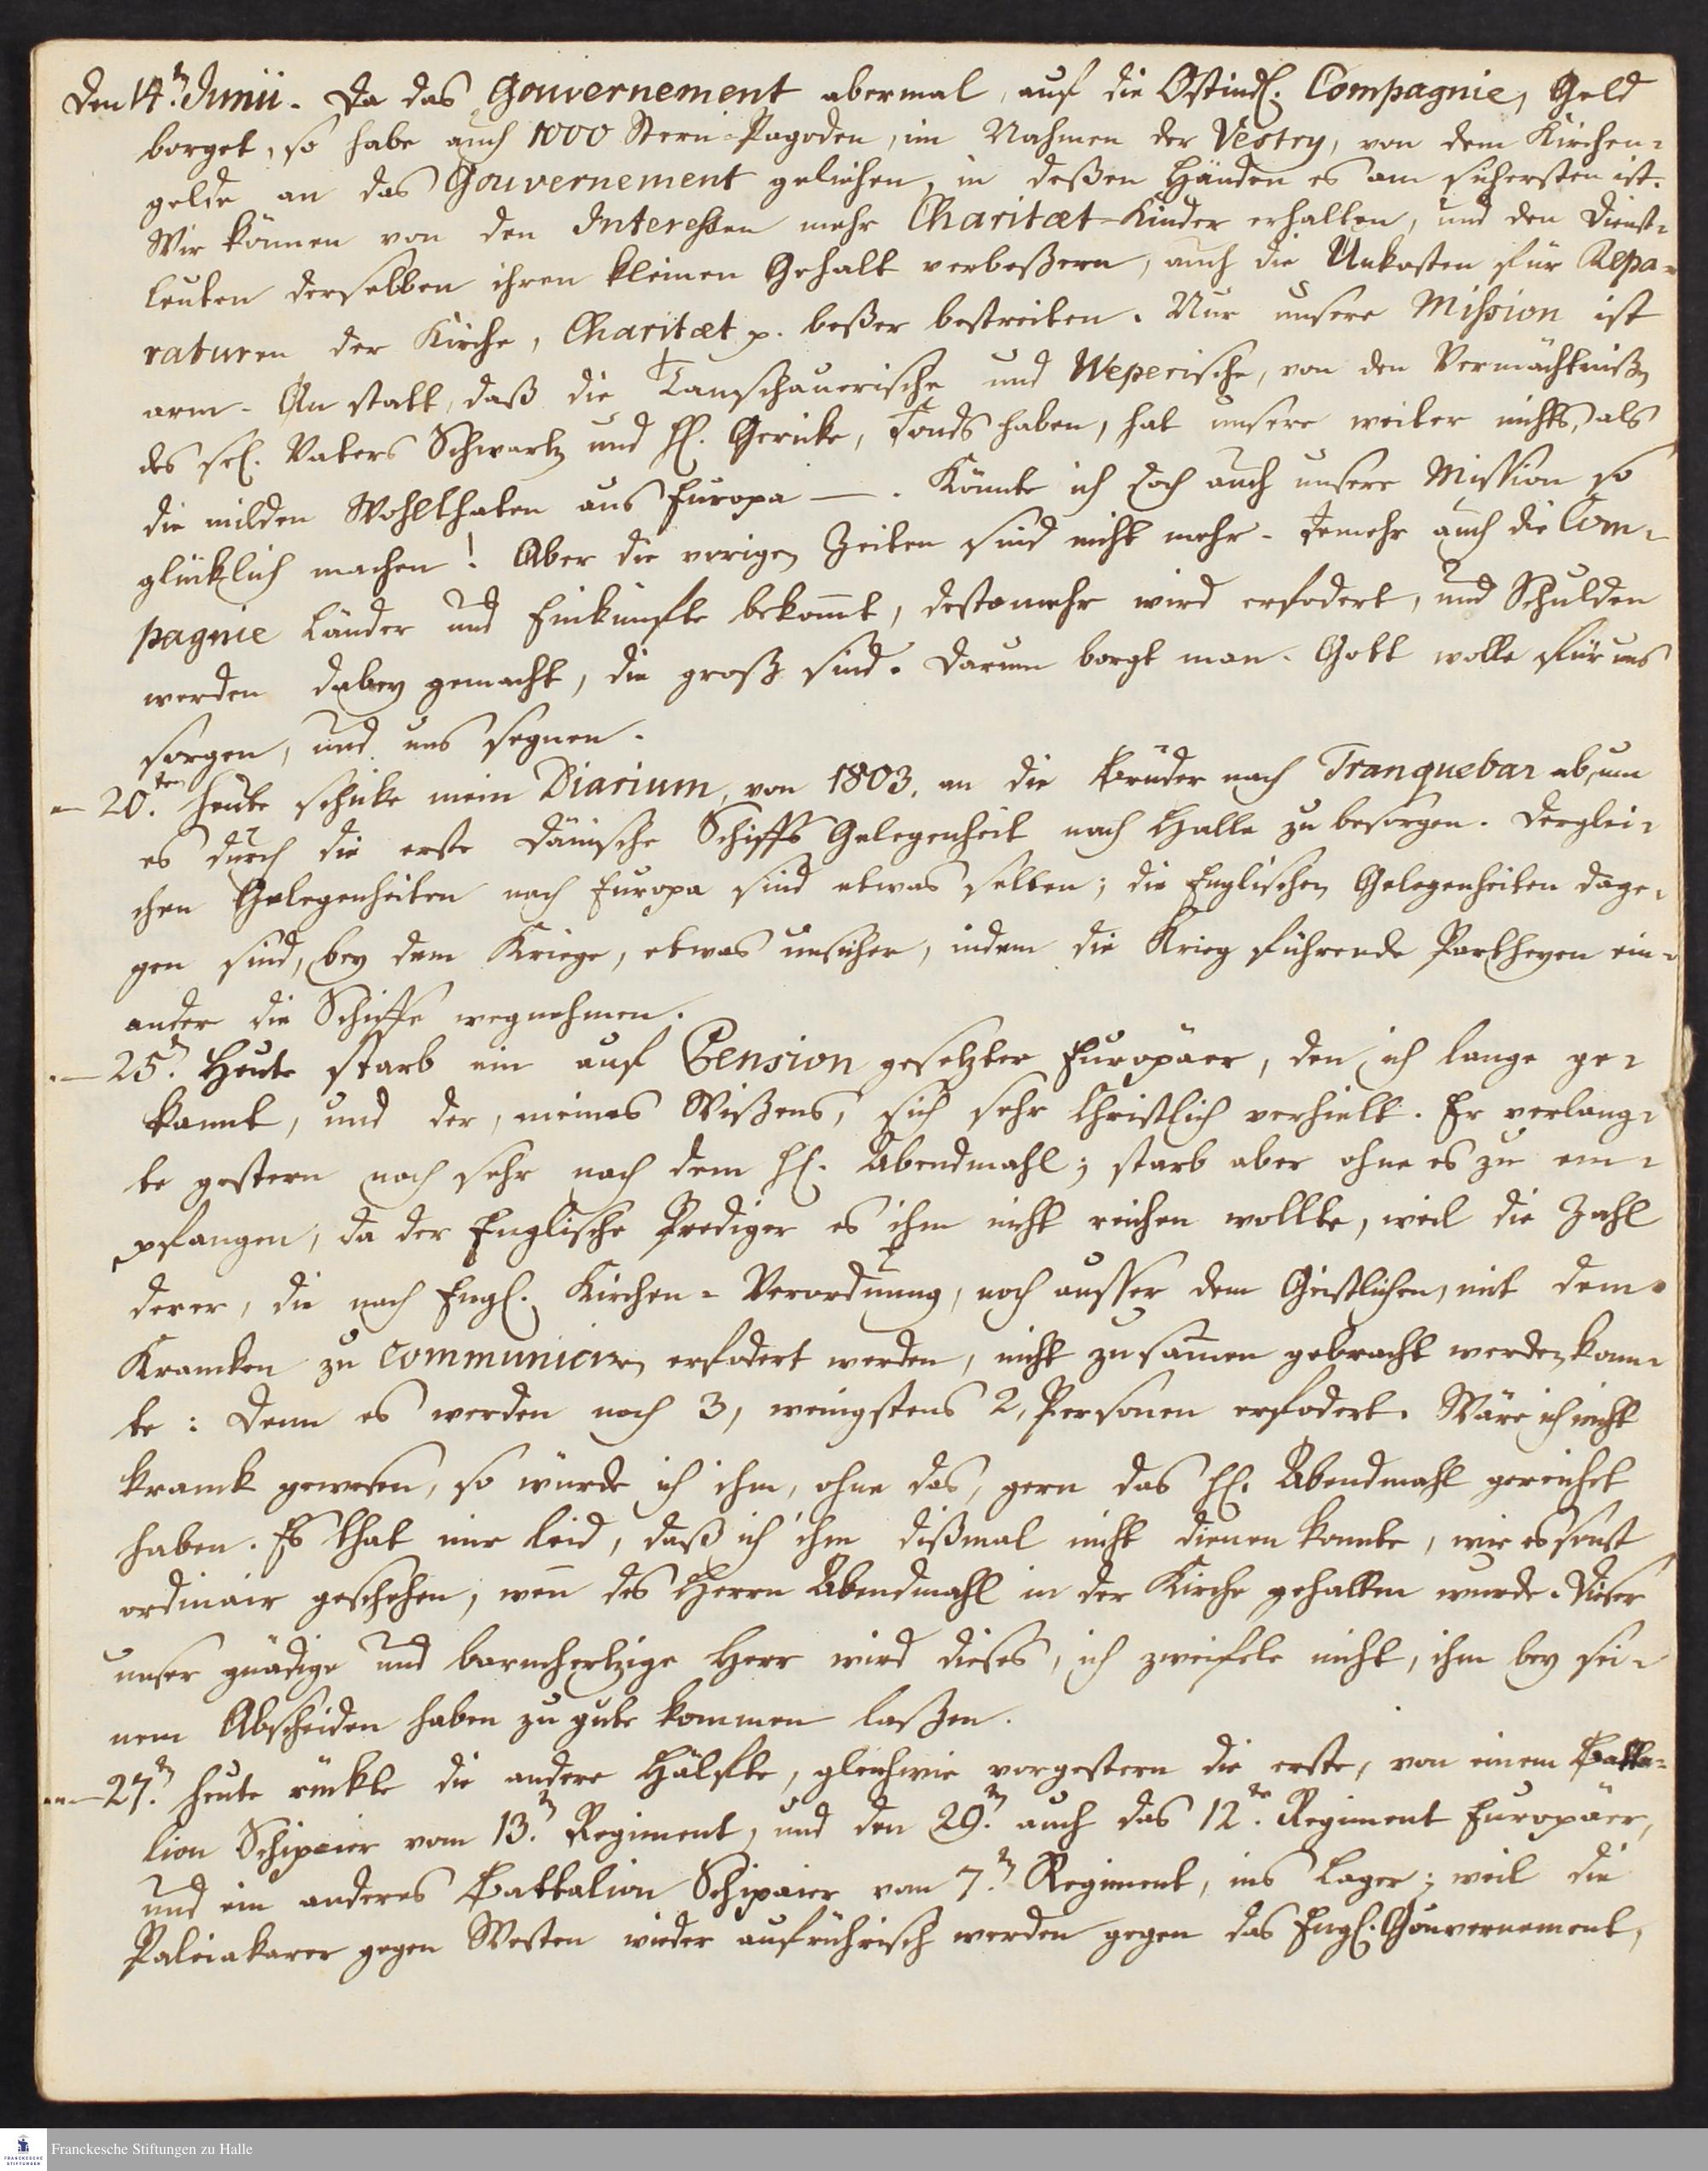 Den 14.ⁿ Junii. Da das Gouvernement abermal, auf die Ostind. Compagnie, Geld
borget, so habe auch 1000 Stern-Pagoden, im Nahmen der Vestry, von dem Kirchen-
gelde an das Gouvernement geliehen, in deßen Händen es am sichersten ist.
Wir können von den Intereßen mehr Charitæt-Kinder erhalten, und den Dienst-
leuten derselben ihren kleinen Gehalt verbeßern, auch die Unkosten für Repa-
raturen der Kirche, Charitæt p. beßer bestreiten. Nur unsere Mißion ist
arm. An statt, daß die Tanschauerische und Weperische, von den Vermächtnißen
des sel. Vaters Schwartz und H. Gericke, Fonds haben, hat unsere weiter nichts, als
die milden Wohlthaten aus Europa —. Könnte ich doch auch unsere Mission so
glücklich machen! Aber die vorigen Zeiten sind nicht mehr. Jemehr auch die Com-
pagnie Länder und Einkünfte bekomt, destomehr wird erfodert, und Schulden
werden dabey gemacht, die groß sind. Darum borgt man. Gott wolle für uns
sorgen, und uns segnen.
— 20.ten Heute schicke mein Diarium, von 1803. an die Brüder nach Tranquebar ab, um
es durch die erste Dänische Schiffs Gelegenheit nach Halle zu besorgen. Derglei-
chen Gelegenheiten nach Europa sind etwas selten; die Englischen Gelegenheiten dage-
gen sind, bey dem Kriege, etwas unsicher, indem die Krieg führende Partheyen ein-
ander die Schiffe wegnehmen.
— 25.ⁿ Heute starb ein auf Pension gesetzter Europäer, den ich lange ge-
kannt, und der, meines Wißens, sich sehr Christlich verhielt. Er verlang-
te gestern noch sehr nach dem H. Abendmahl; starb aber ohne es zu em-
pfangen, da der Englische Prediger es ihm nicht reichen wollte, weil die Zahl
derer, die nach Engl. Kirchen-Verordnung, noch ausser dem Geistlichen, mit dem
Krancken zu communiciren erfodert werden, nicht zusamen gebracht werden konn-
te: Denn es werden noch 3, wenigstens 2, Personen erfodert. Wäre ich nicht
kranck gewesen, so würde ich ihm, ohne das, gern das H. Abendmahl gereichet
haben. Es that mir leid, daß ich ihm dißmal nicht dienen konnte, wie es sonst
ordinair geschehen, wen des Herrn Abendmahl in der Kirche gehalten wurde. Dieser
unser gnädige und barmhertzige Herr wird dieses, ich zweifele nicht, ihm bey sei-
nem Abscheiden haben zu gute kommen laßen.
— 27.ⁿ Heute rückte die andere Hälfte, gleichwie vorgestern die erste, von einem Batta-
lion Schipaier vom 13.ⁿ Regiment, und den 29.ⁿ auch das 12.te Regiment Europäer,
und ein anderes Battalion Schipaier vom 7.ⁿ Regiment, ins Lager; weil die
Paleiakarer gegen Westen wieder aufrührisch werden gegen das Engl. Gouvernement,
Franckesche Stiftungen zu Halle